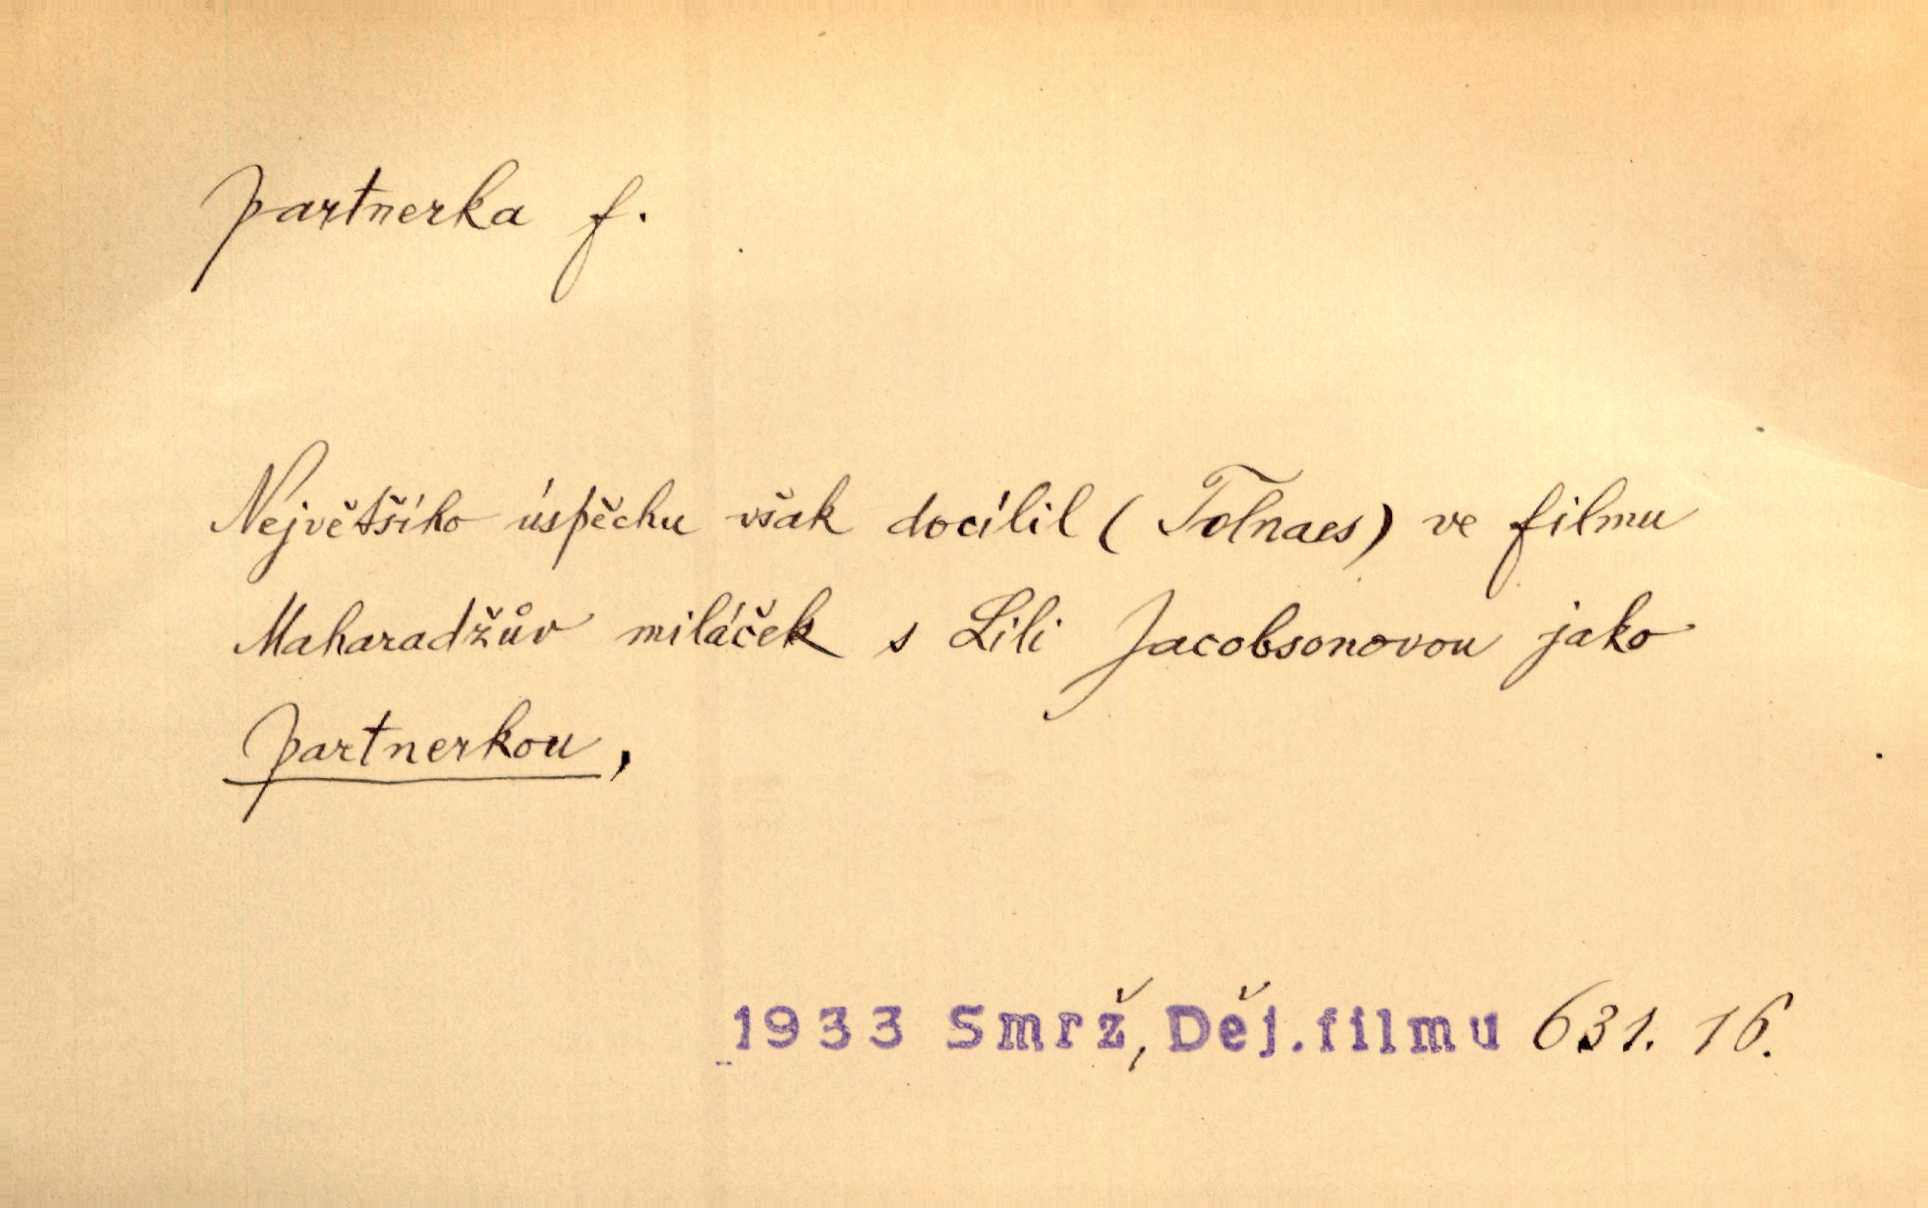 partnerka f.
Největšího úspěchu však docílil (Tolnaes) ve filmu
Maharadžův miláček s Lili Jacobsonovou jako
partnerkou,
1933 Smrž, Děj. filmu 631. 16.